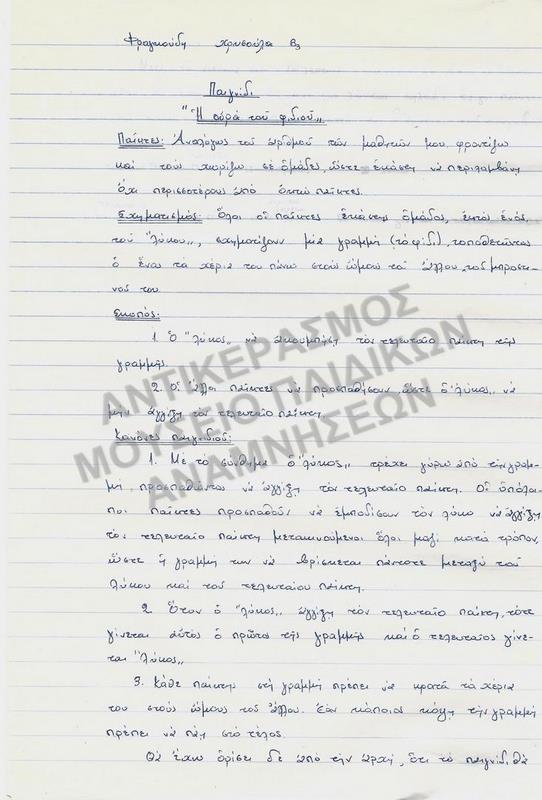 Φραγκούδη Χρυσούλα Β3
Παιγνίδι
"Ἡ οὐρά τοῦ φιδιοῦ"
Παίκτες: Ἀναλόγως τοῦ ἀριθμοῦ τῶν μαθητῶν μου, φροντίζω
καί τούς χωρίζω σέ ὁμάδες, ὥστε ἑκάστη νά περιλαμβάνη
ὄχι περισσοτέρους ἀπό ὀκτώ παίκτες.
Σχηματισμός: Ὅλοι οἱ παίκτες ἑκάστης ὁμάδος, ἐκτός ἑνός,
τοῦ "λύκου", σχηματίζουν μία γραμμή (τό φίδι), τοποθετώντας
ὁ ἕνας τά χέρια του πάνω στούς ὤμους τοῦ ἄλλου, τοῦ μπροστι-
νοῦ του.
Σκοπός:
1. Ὁ "λύκος" νά ἀκουμπήση τόν τελευταῖο παίκτη τῆς
γραμμῆς.
2. Οἱ ἄλλοι παίκτες νά προσπαθήσουν, ὥστε ὁ "λύκος" νά
μην ἀγγίξη τόν τελευταῖο παίκτη.
Κανόνες παιγνιδιοῦ:
1. Μέ τό σύνθημα ὁ "λύκος" τρέχει γύρω ἀπό τήν γραμ-
μή, προσπαθώντας νά ἀγγίξη τόν τελευταῖο παίκτη. Οἱ ὑπόλοι-
ποι παίκτες προσπαθοῦν νά ἐμποδίσουν τόν λύκο νά ἀγγίξη
τόν τελευταῖο παίκτη μετακινούμενοι ὅλοι μαζί κατά τρόπον,
ὥστε ἡ γραμμή των νά βρίσκεται πάντοτε μεταξύ τοῦ
λύκου καί τοῦ τελευταίου παίκτη.
2. Ὅταν ὁ "λύκος" ἀγγίξη τόν τελευταῖο παίκτη, τότε
γίνεται αὐτός ὁ πρῶτος τῆς γραμμῆς καί ὁ τελευταῖος γίνε-
ται "λύκος"
3. Κάθε παίκτης στή γραμμή πρέπει νά κρατᾶ τά χέρια
του στούς ὤμους τοῦ ἄλλου. Ἐάν κάποιος κόψη τήν γραμμή
πρέπει νά πάη στό τέλος.
Θά ἔχω ὁρίσει δέ ἀπό τήν ἀρχή, ὅτι τό παιγνίδι θά
ΑΝΤΙΚΕΡΑΣΜΟΣ
ΜΟΥΣΕΙΟ ΠΑΙΔΙΚΩΝ
ΑΝΑΜΝΗΣΕΩΝ